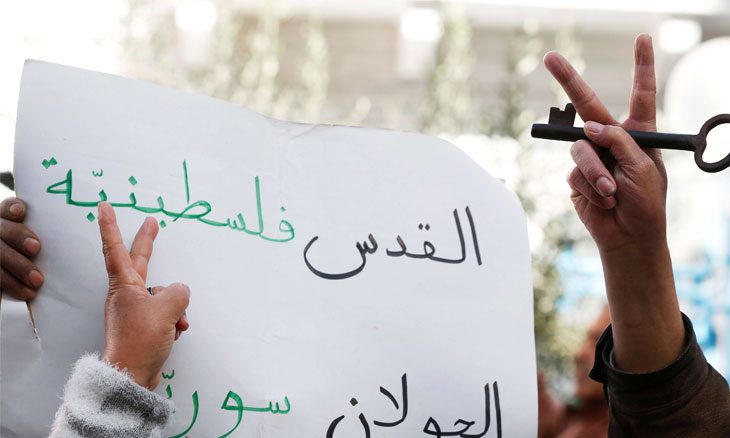 القدس فلسطينيّة
الجولان سوريّ